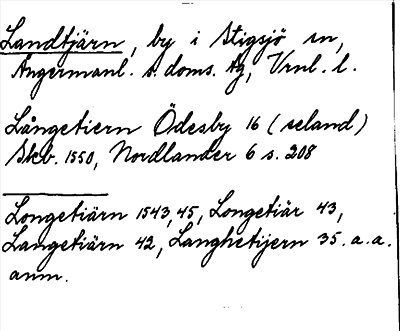 Landtjärn, by i Stigsjö sn,
Ångermanl. s. doms. tg, Vrnl. l.
Långetiern Ödesby 16 (seland)
Skb. 1550, Nordlander 6 s. 208
Longetiärn 1543, 45, Longetiär 43,
Langetiärn 42, Langhetijern 35. a. a.
anm.